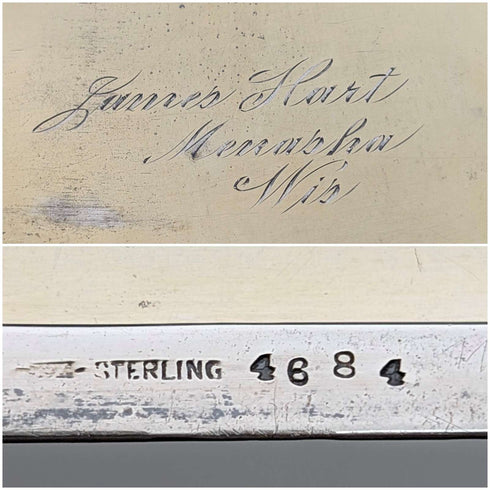 James Hart
Menasha
Wis
STERLING 4684